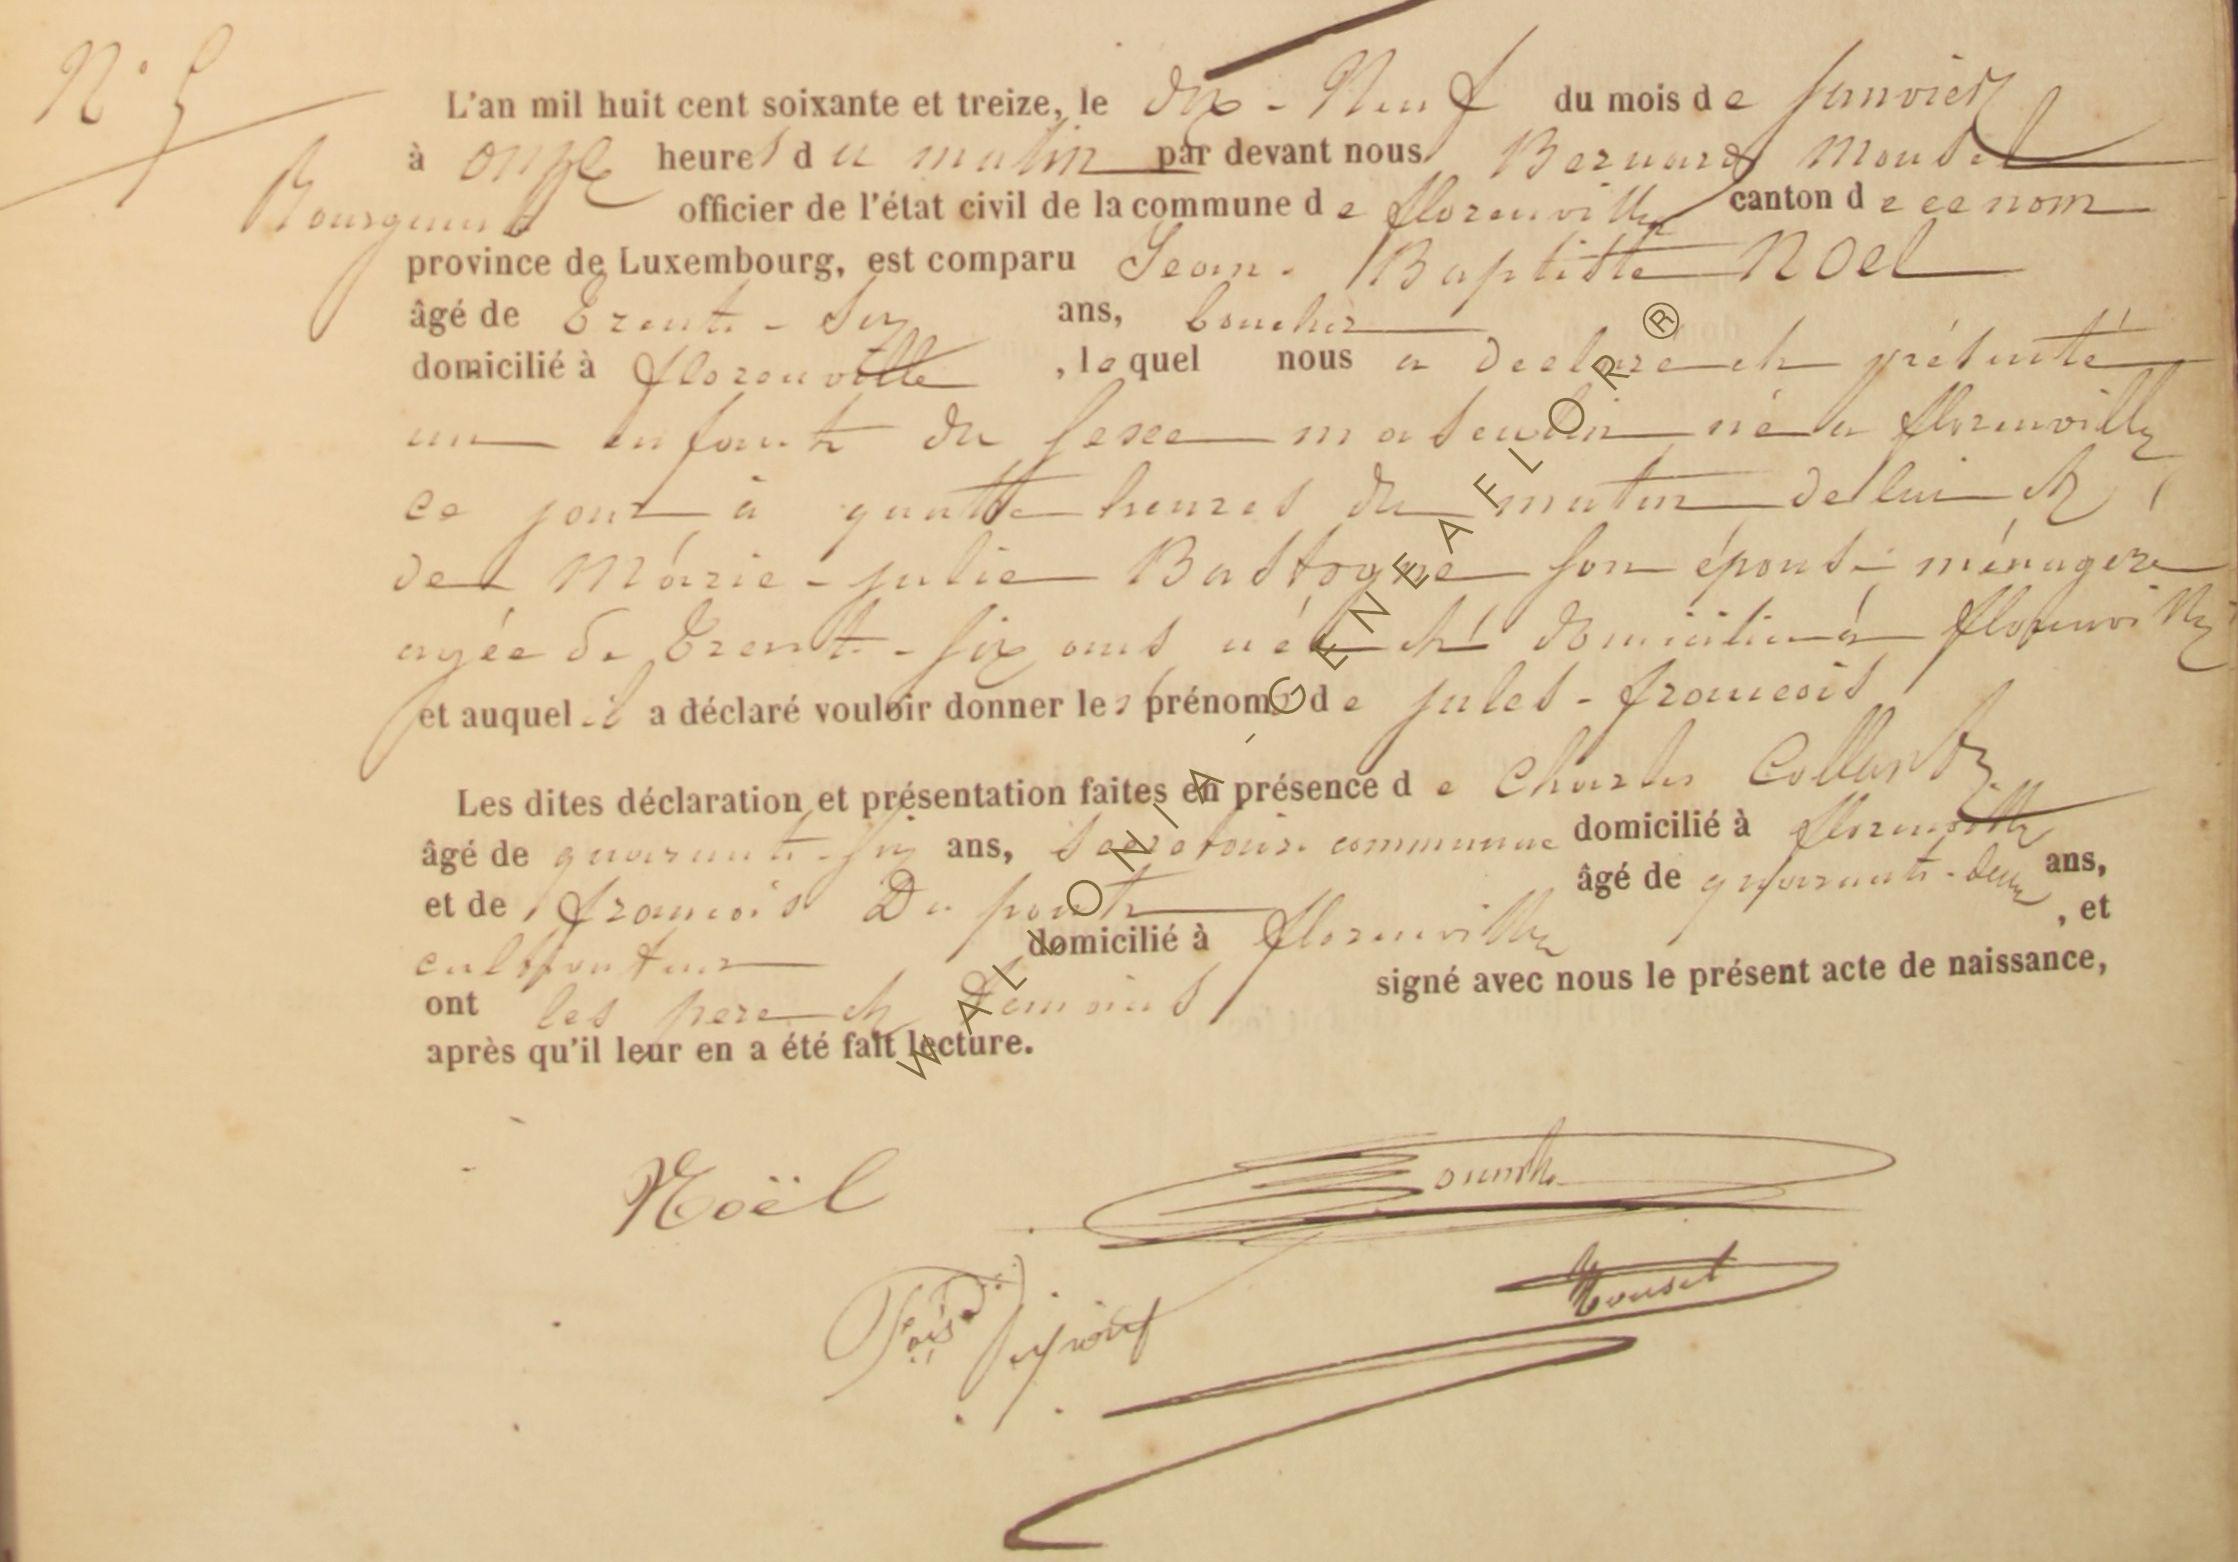 N° 5
L'an mil huit cent soixante et treize, le dix-Neuf du mois de Janvier
à onze heures du matin par devant nous Bernard Mousel
Bourgmestre officier de l'état civil de la commune de florenville canton de ce nom
province de Luxembourg, est comparu Jean-Baptiste Noel
âgé de Trente-Six ans, boucher
domicilié à florenville, lequel nous a déclaré et présenté
un enfant du sexe masculin né a florenville
ce jour à quatre heures du matin de lui et
de Marie-julie Bastogne son épouse ménagere
agée de Trente-six ans née et domiciliée à florenville
et auquel il a déclaré vouloir donner les prénoms de jules-francois
Les dites déclaration et présentation faites en présence de Charles Collard
âgé de quarante-six ans, Secretaire communal domicilié à florenville
et de françois Dupont âgé de quarante-deux ans,
cultivateur domicilié à florenville, et
ont les pere et Temoins signé avec nous le présent acte de naissance,
après qu'il leur en a été fait lecture.
Noël
Mousel
WALLONIA - GENEAFLOR ®